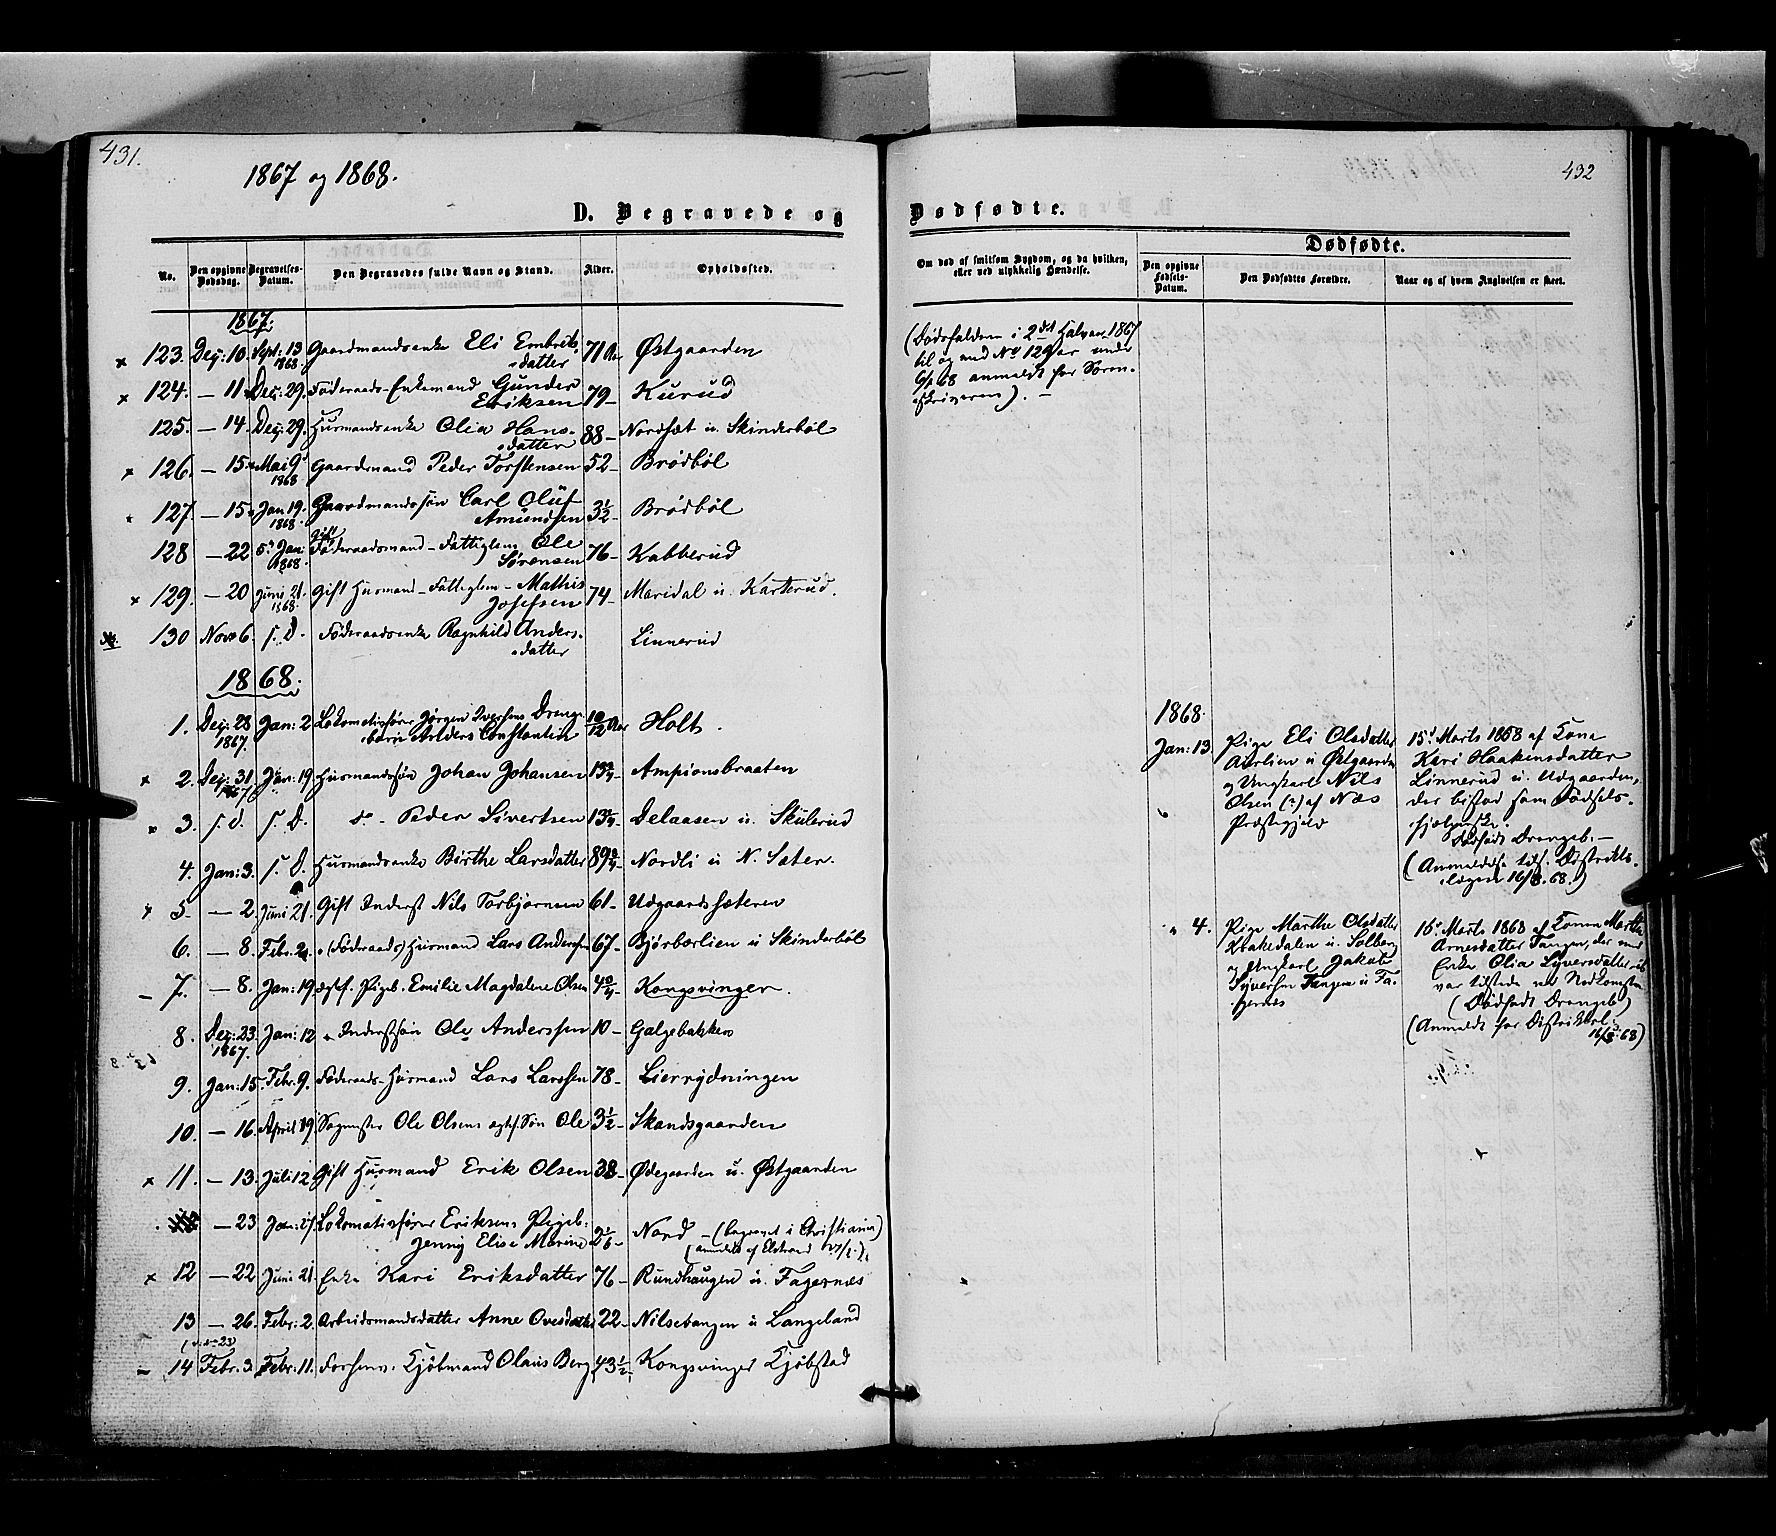 431.
1867 og 1868.
D. Begravede og
No.
Den opgivne Dødsdag.
Begravelses-Datum.
Den Begravedes fulde Navn og Stand.
Alder.
Opholdssted.
1867.
123. Dez: 10. Sept: 13 1868. Gaardmandsenke Eli Embrets-
datter 71 Aar Østgaarden
124. — 11 Dez: 29. Føderaads-Enkemand Gunder
Eriksen 79 – Kurud
125. — 14. Dez: 29. Husmandsenke Olia Hans-
datter 88 – Nordsæt u. Skinderbøl
126. — 15 Mai 9 1868 Gaardmand Peder Torstensen 52 – Brødbøl
127. — 15 Jan 19. 1868. Gaardmandssøn Carl Oluf
Amundsen 3½ – Brødbøl
128 — 22 5. Jan: 1868. gift Føderaadsmand – Fattiglem Ole
Sørensen 76 – Kabberud
129. — 20 Juni 21. 1868. Gift Husmand – Fattiglem – Mathis
Josefsen 74 – Maridal u. Karterud.
130 Nov: 6. s. D. Føderaadsenke Ragnhild Anders-
datter Linnerud
1868.
1. Dez: 28 1867. Jan: 2 Lokomotivfører Jørgen Iversens Drenge-
barn Anders Constantin 10/12 Aar Holt.
2. Dez: 31 1867 Jan: 19 Husmandssøn Johan Johansen 13¾ – Ampionsbraaten
3. s. d. s. D. do – Peder Sivertsen 13¾ – Delaasen u. Skulerud
4. Jan: 3. s. D. Husmandsenke Birthe Larsdatter 89¾ – Nordli u N. Sæter.
5 – — 2. Juni 21. Gift Inderst Nils Torbjørnsen 61 – Udgaardssæteren
6. — 8. Febr. 2. (Føderaads) Husmand Lars Andersen 67 – Bjørbærlien u Skinderbøl
7. — 8. Jan: 19. ægtef. Pigeb. Emilie Magdalene Olsen Kongsvinger.
8. Dez: 23 1867. Jan: 12 Inderstsøn Ole Anderssen 10 – Galgebakken
9. Jan: 15 Febr. 9. Føderaads-Husmand Lars Larssen 78 – Lierrydningen
10. — 16. April 19. Sagmester Ole Olsens ægtef. Søn Ole 3½ – Skandsgaarden
11. — 13. Juli 12 Gift Husmand Erik Olsen 38 – Ødegaarden u. Østgaarden
— 23 Jan: Lokomotivfører Eriksens Pigeb.
Jenny Elise Marine Nord – (begravet i Christiania)
(anmeldt af Elstrand
12 — 22 Juni 21. Enke Kari Eriksdatter 76 – Rundhaugen u. Fagernes
13 — 26. Febr: 2. Arbeidsmandsdatter Anne Ovesdatter 22 – Nilsebangen u Langeland
14 Febr. 3. Febr: 11. Kjøbmand Olaus Berg 43½ – Kongsvinger Kjøbstad
432
Dødfødte.
Om død af smitsom Sygdom, og da hvilken,
eller ved ulykkelig Hændelse.
Dødfødte.
Den opgivne Fødsels-Datum.
Den Dødfødtes Forældre.
Naar og af hvem Angivelsen er skeet.
(Dødsfaldene i 2det Halvaar 1867
til og med No 129 er under
6/1 68 anmeldt for Soren-
skriveren). –
1868.
Jan: 13. Pige Eli Olsdatter
Aarlien u Østgaarden
og Ungkarl Nils
Olsen (?) af Næs
Præstegjeld
15. Marts 1868 af Kone
Kari Haakensdatter
Linnerud u. Udgaarden,
der bistod som Fødsels-
hjælperske.
dødfødt Drengeb. –
(Anmeldelse tils. Distrikts-
lægen 16/3. 68.)
" 4. Pige Marthe Olsdatter
Krakedalen u. Solberg
og Ungkarl Jakob
Syversen Tangen u Fa-
gernes
16. Marts 1868 af Konen Marthe
Arnesdatter Tangen, der med
Enke Olia Syversdatter
var tilstede ved Nedkomsten
(Dødfødt Drengeb)
(Anmeldt for Distriktsl.
16/3 68)